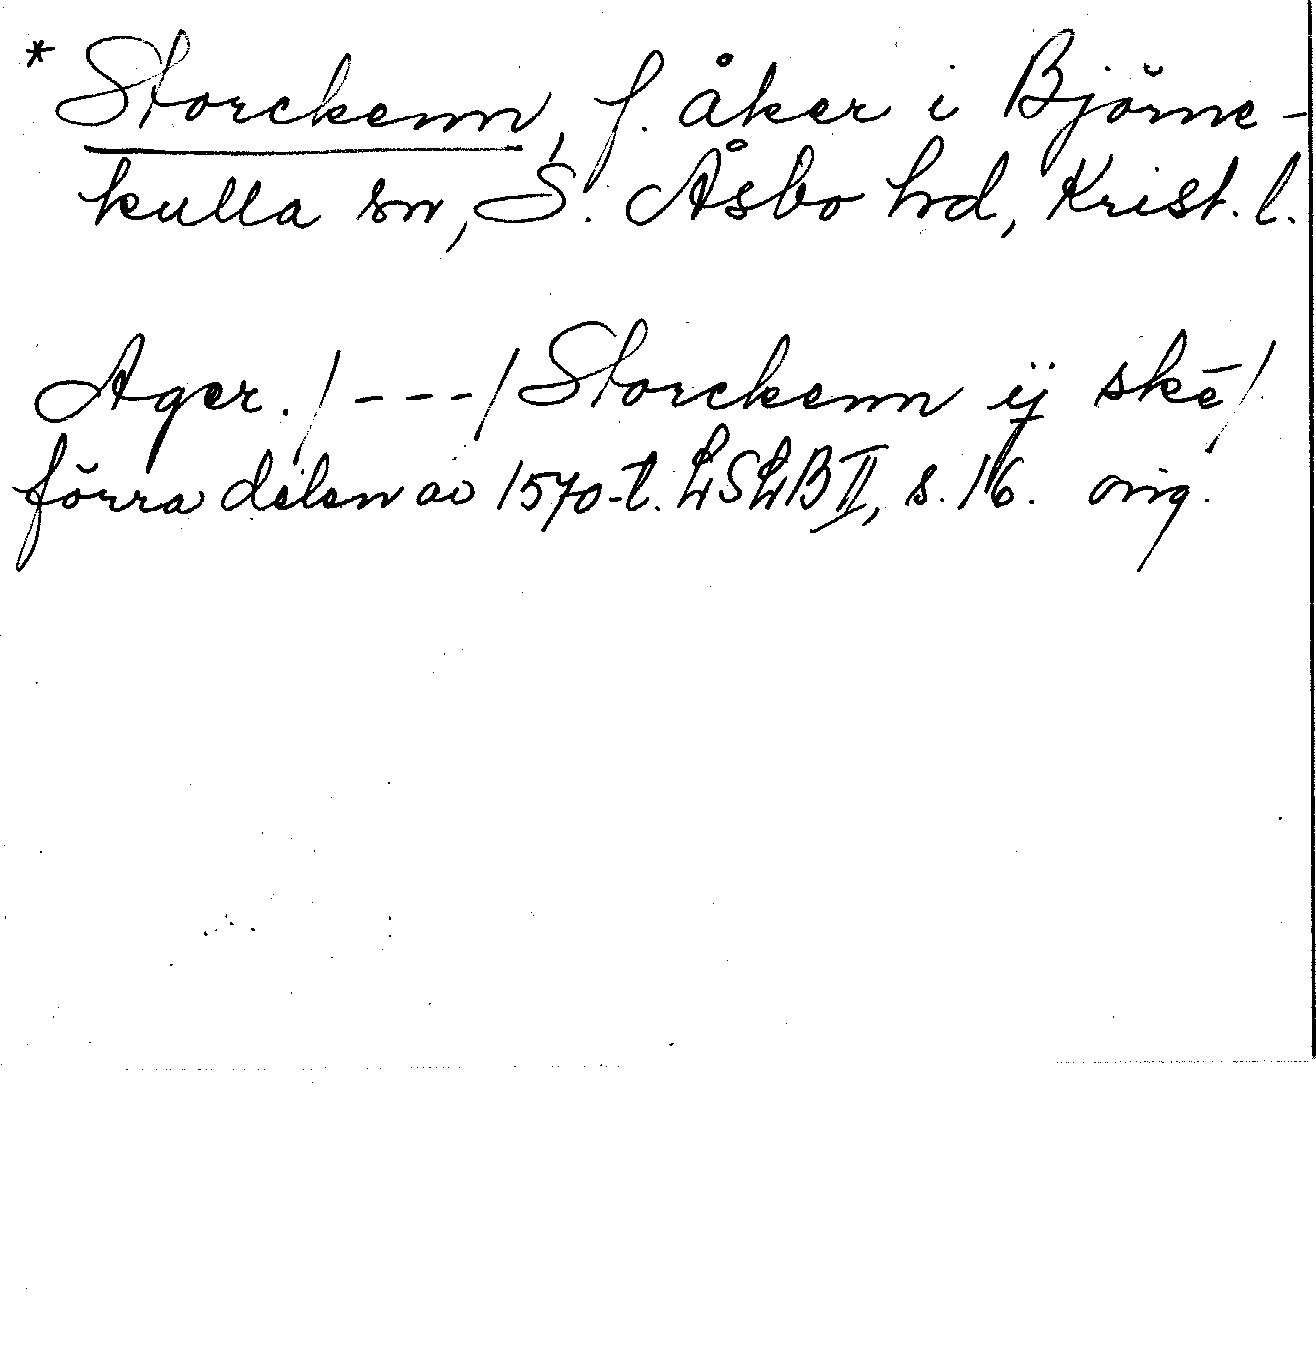 * Storckenn, f. åker i Björne-
kulla sn, S. Åsbo hd, Krist. l.
Ager. / - - - / Storckenn ij skē /
förra delen av 1570-t. LSLB II, s. 16. orig.